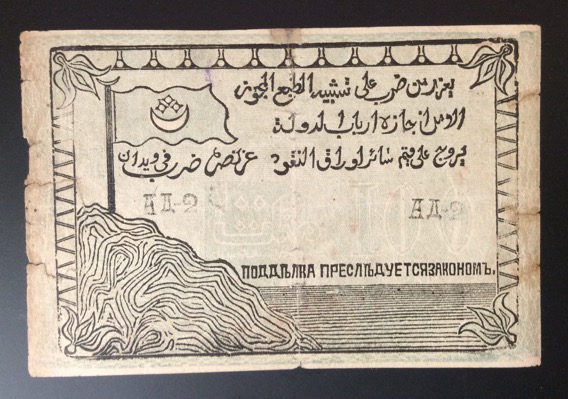 يعزر من ضرب على تشييد الطبع المجوز
الا من اجازه ارباب الدولة
يروج على قيم سائر اوراق النقود ضرب في ويدان
АД-2 АД-2
ПОДДѢЛКА ПРЕСЛѢДУЕТСЯ ЗАКОНОМЪ.